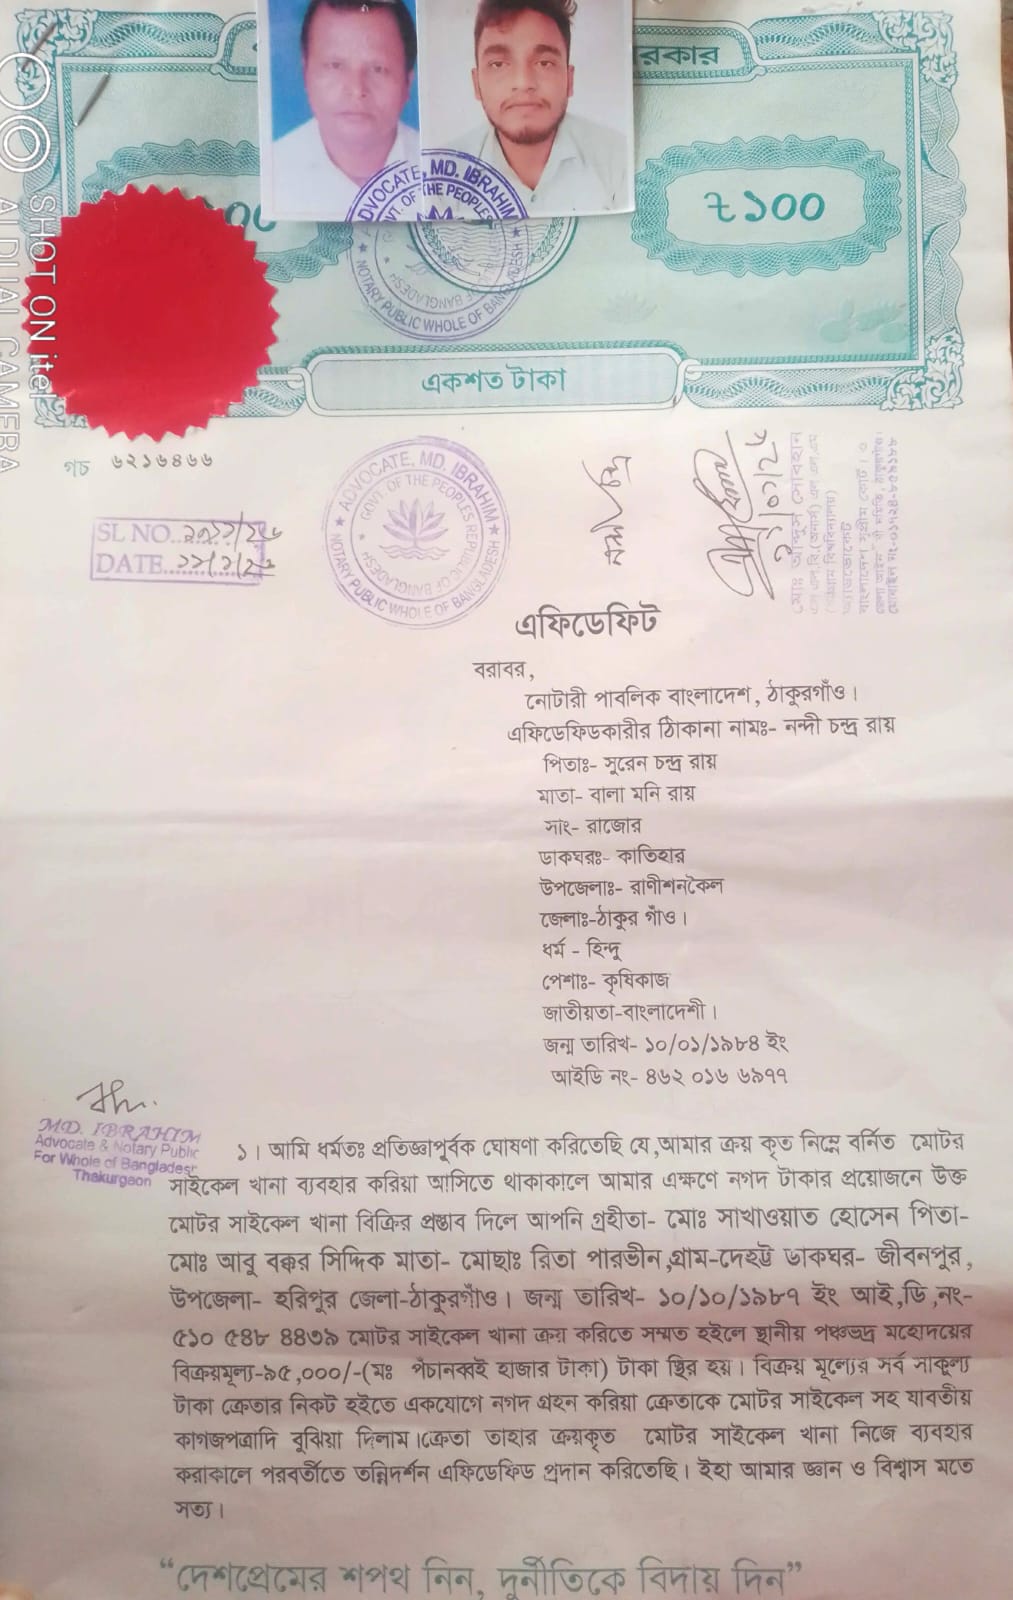 রকার
৳১০০
ADVOCATE, MD. IBRAHIM
GOVT. OF THE PEOPLES
NOTARY PUBLIC WHOLE OF BANGLADESH
একশত টাকা
SHOT ON itel
AI DUAL CAMERA
গচ ৬২১৬৪৬৬
ADVOCATE, MD. IBRAHIM
GOVT. OF THE PEOPLES REPUBLIC OF BANGLADESH
NOTARY PUBLIC WHOLE OF BANGLADESH
SL NO.
DATE
এফিডেফিট
বরাবর,
নোটারী পাবলিক বাংলাদেশ, ঠাকুরগাঁও।
এফিডেফিডকারীর ঠিকানা নামঃ- নন্দী চন্দ্র রায়
পিতাঃ- সুরেন চন্দ্র রায়
মাতা- বালা মনি রায়
সাং- রাজোর
ডাকঘরঃ- কাতিহার
উপজেলাঃ- রাণীশনকৈল
জেলাঃ-ঠাকুর গাঁও।
ধর্ম - হিন্দু
পেশাঃ- কৃষিকাজ
জাতীয়তা-বাংলাদেশী।
জন্ম তারিখ- ১০/০১/১৯৮৪ ইং
আইডি নং- ৪৬২ ০১৬ ৬৯৭৭
MD. IBRAHIM
Advocate & Notary Public
For Whole of Bangladesh
Thakurgaon
১। আমি ধর্মতঃ প্রতিজ্ঞাপূর্বক ঘোষণা করিতেছি যে,আমার ক্রয় কৃত নিম্নে বর্নিত মোটর
সাইকেল খানা ব্যবহার করিয়া আসিতে থাকাকালে আমার এক্ষণে নগদ টাকার প্রয়োজনে উক্ত
মোটর সাইকেল খানা বিক্রির প্রস্তাব দিলে আপনি গ্রহীতা- মোঃ সাখাওয়াত হোসেন পিতা-
মোঃ আবু বক্কর সিদ্দিক মাতা- মোছাঃ রিতা পারভীন,গ্রাম-দেহট্ট ডাকঘর- জীবনপুর,
উপজেলা- হরিপুর জেলা-ঠাকুরগাঁও। জন্ম তারিখ- ১০/১০/১৯৮৭ ইং আই,ডি,নং-
৫১০ ৫৪৮ ৪৪৩৯ মোটর সাইকেল খানা ক্রয় করিতে সম্মত হইলে স্থানীয় পঞ্চভদ্র মহোদয়ের
বিক্রয়মূল্য-৯৫,০০০/-(মঃ পঁচানব্বই হাজার টাকা) টাকা স্থির হয়। বিক্রয় মূল্যের সর্ব সাকুল্য
টাকা ক্রেতার নিকট হইতে একযোগে নগদ গ্রহন করিয়া ক্রেতাকে মোটর সাইকেল সহ যাবতীয়
কাগজপত্রাদি বুঝিয়া দিলাম।ক্রেতা তাহার ক্রয়কৃত মোটর সাইকেল খানা নিজে ব্যবহার
করাকালে পরবর্তীতে তন্নিদর্শন এফিডেফিড প্রদান করিতেছি। ইহা আমার জ্ঞান ও বিশ্বাস মতে
সত্য।
“দেশপ্রেমের শপথ নিন, দুর্নীতিকে বিদায় দিন”